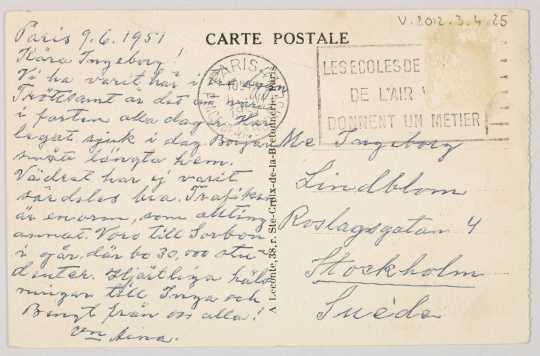 V. 2012. 3. 4. 25
CARTE POSTALE
Paris 9.6. 1951
Kära Ingeborg!
Vi ha varit här i
Tröttsamt är det att vara
i farten alla dagar. Har
legat sjuk i dag. Börjar
smått längta hem.
Vädret har ej varit
särdeles bra. Trafiken
är enorm, som allting
annat. Voro till Sorbon
i går, där bo 30,000 stu-
denter. Hjärtliga häls-
ningar till Inga och
Bengt från oss alla!
Vn Aina.
PARIS
LES ECOLES DE
DE L'AIR
DONNENT UN METIER
A. Leconte, 38, r. Ste-Croix-de-la-Bretonnerie, Paris
Me Ingeborg
Lindblom
Roslagsgatan 4
Stockholm
Suède